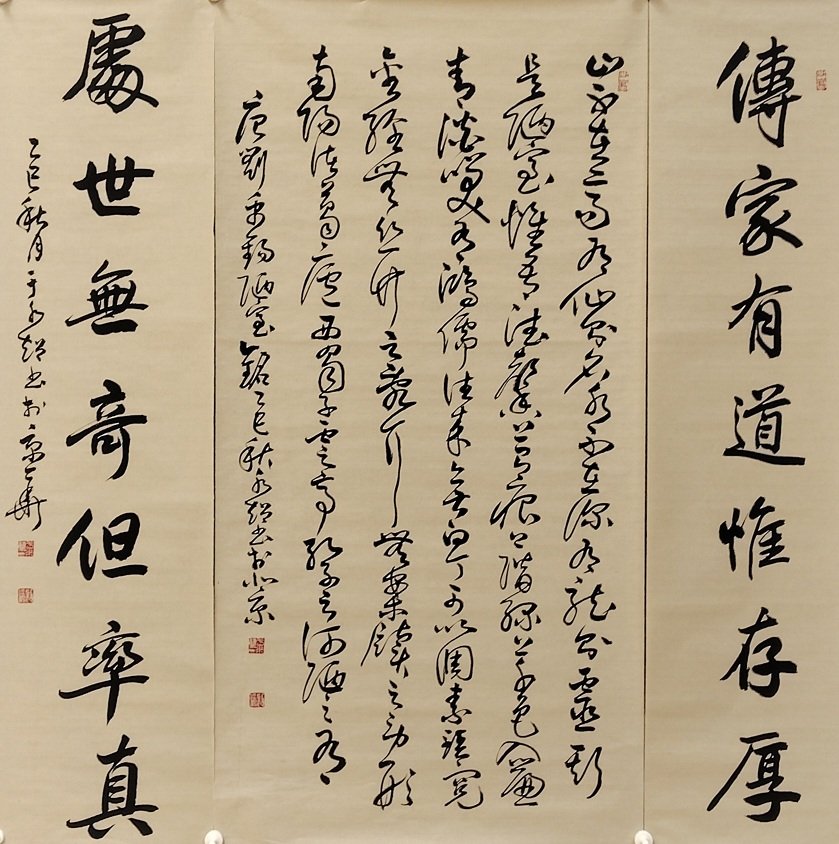 傳家有道惟存厚
山不在高有仙則名水不在深有龍則靈斯
是陋室惟吾德馨苔痕上階綠草色入簾
青談笑有鴻儒往來無白丁可以調素琴閱
金經無絲竹之亂耳無案牘之勞形
南陽諸葛廬西蜀子雲亭孔子云何陋之有
唐劉禹錫陋室銘乙巳秋永超書於北京
處世無奇但率真
乙巳秋月于永超書於京華